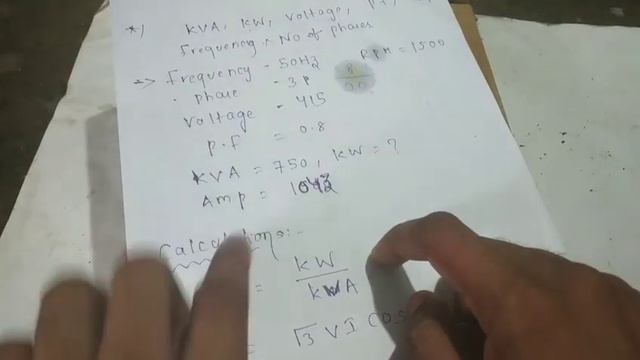 *) KVA, KW, Voltage,
Frequency, No of phases
=> Frequency - 50HZ RPM = 1500
. Phase - 3P
Voltage - 415
P.F = 0.8
KVA = 750, KW = ?
Amp = 1042
Calculations:-
= KW
KVA
= √3 VI COS